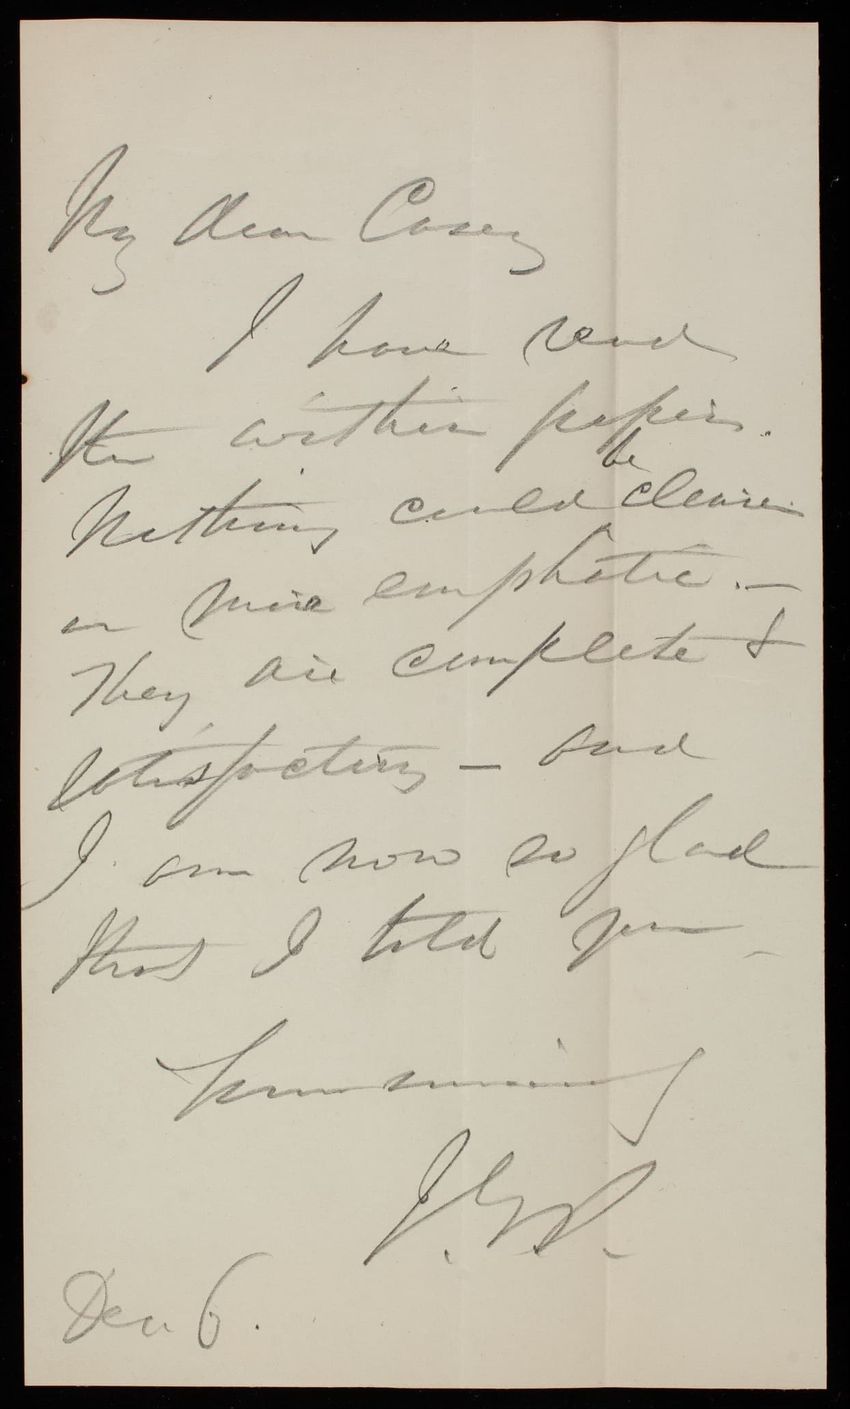 My dear Casey
I have read
the within papers.
Nothing could be clearer
or more emphatic. —
They are complete &
satisfactory — and
I am now so glad
that I told you —
Yours sincerely
Dec. 6.